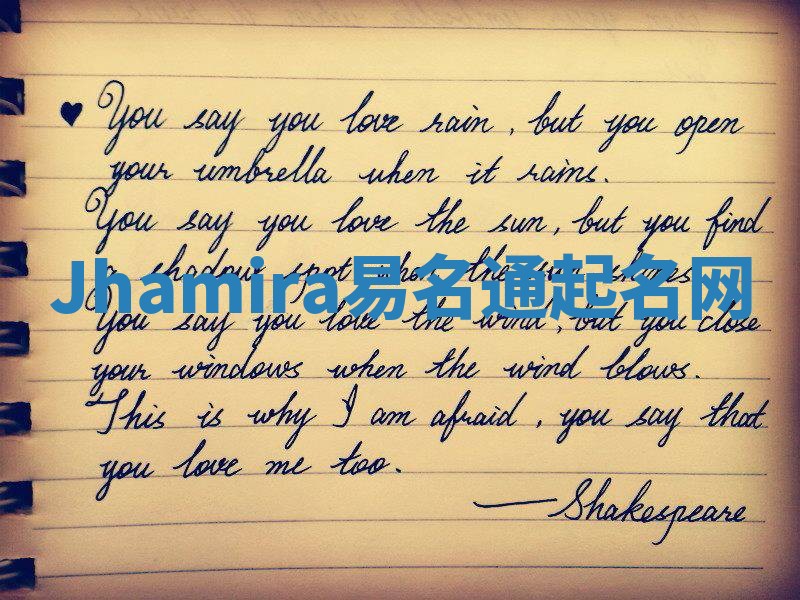 ♥ You say you love rain, but you open
your umbrella when it rains.
You say you love the sun, but you find
a shadow spot when the sun shines
Jhamira易名通起名网
You say you love the wind, but you close
your windows when the wind blows.
This is why I am afraid, you say that
you love me too.
—Shakespeare